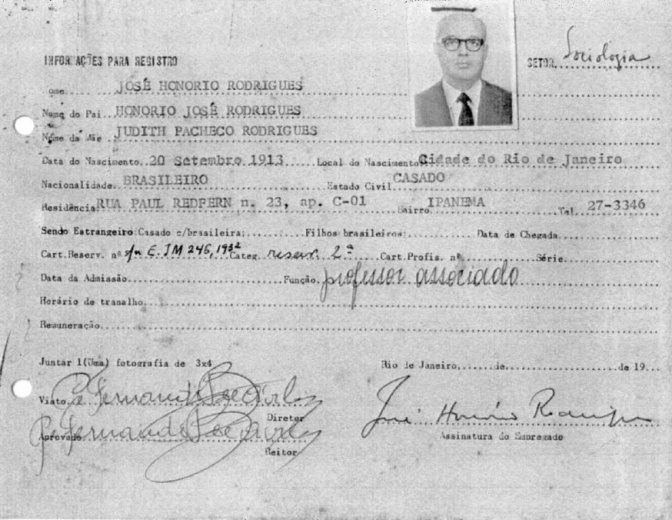 SETOR Sociologia
INFORMAÇÕES PARA REGISTRO
ome JOSÉ HONORIO RODRIGUES
Nome do Pai HONORIO JOSÉ RODRIGUES
Nome da Mãe JUDITH PACHECO RODRIGUES
Data do Nascimento 20 Setembro 1913 Local do Nascimento Cidade do Rio de Janeiro
Nacionalidade BRASILEIRO Estado Civil CASADO
Residência RUA PAUL REDFERN n. 23, ap. C-01 Bairro IPANEMA Tel 27-3346
Sendo Estrangeiro: Casado c/brasileira: Filhos brasileiros: Data de Chegada
Cart.Reserv. nº E.IM 246, Categ. reserv. 2ª Cart.Profis. nº Série
Data da Admissão Função professor associado
Horário de trabalho
Remuneração
Juntar 1(Uma) fotografia de 3x4 Rio de Janeiro, de de 19
Visto
Diretor
José Honório Rodrigues
Aprovado
Reitor
Assinatura do Empregado